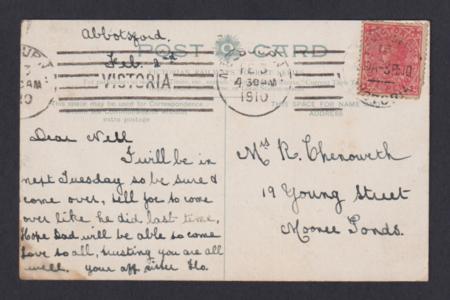 Abbotsford.
Feb. 2nd
POST CARD
VICTORIA
FE 3
4 30AM
1910
This space may be used for Correspondence
extra postage
THIS SPACE FOR NAME
ADDRESS
Dear Nell
I will be in
next Tuesday so be sure &
come over, tell Joe to come
over like he did last time,
Hope Dad will be able to come
Love to all, trusting you are all
well. your aff sister Flo.
Mrs R. Chenoweth
19 Young Street
Moonee Ponds.